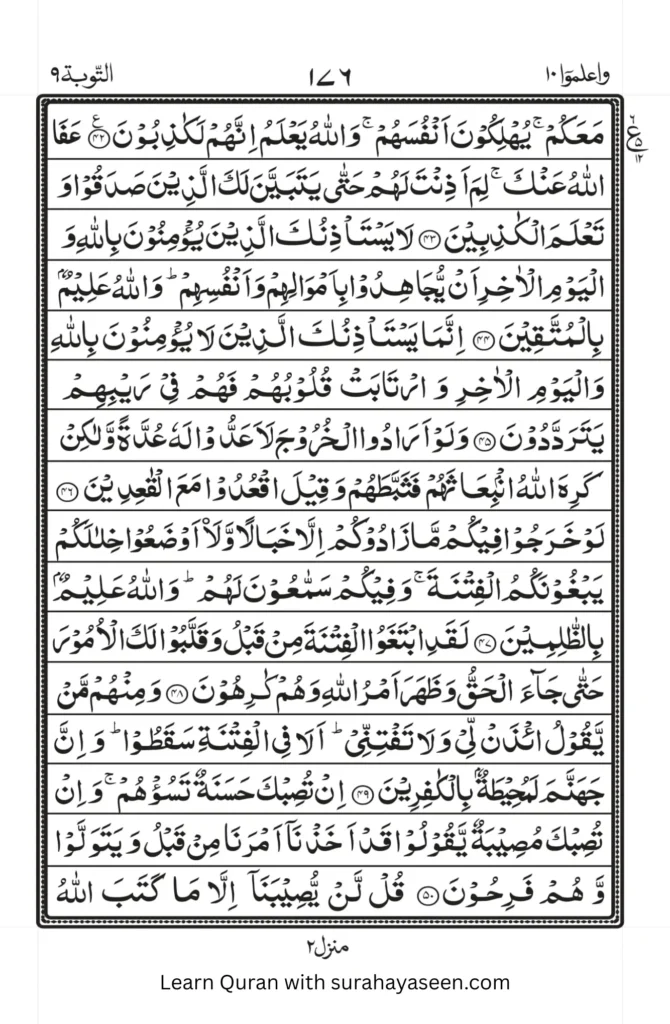 واعلموا ١٠ ١٧٦ التّوبة ٩
مَعَكُمْ ۚ يُهْلِكُوْنَ اَنْفُسَهُمْ ۚ وَاللّٰهُ يَعْلَمُ اِنَّهُمْ لَكٰذِبُوْنَ ﴿٤٢﴾ ع عَفَا
ع ٦ ٥ ١٢
اللّٰهُ عَنْكَ ۚ لِمَ اَذِنْتَ لَهُمْ حَتّٰى يَتَبَيَّنَ لَكَ الَّذِيْنَ صَدَقُوْا وَ
تَعْلَمَ الْكٰذِبِيْنَ ﴿٤٣﴾ لَا يَسْتَاْذِنُكَ الَّذِيْنَ يُؤْمِنُوْنَ بِاللّٰهِ وَ
الْيَوْمِ الْاٰخِرِ اَنْ يُّجَاهِدُوْا بِاَمْوَالِهِمْ وَاَنْفُسِهِمْ ؕ وَاللّٰهُ عَلِيْمٌۢ
بِالْمُتَّقِيْنَ ﴿٤٤﴾ اِنَّمَا يَسْتَاْذِنُكَ الَّذِيْنَ لَا يُؤْمِنُوْنَ بِاللّٰهِ
وَالْيَوْمِ الْاٰخِرِ وَ ارْتَابَتْ قُلُوْبُهُمْ فَهُمْ فِيْ رَيْبِهِمْ
يَتَرَدَّدُوْنَ ﴿٤٥﴾ وَلَوْ اَرَادُوا الْخُرُوْجَ لَاَعَدُّوْا لَهٗ عُدَّةً وَّلٰكِنْ
كَرِهَ اللّٰهُ انْۢبِعَاثَهُمْ فَثَبَّطَهُمْ وَقِيْلَ اقْعُدُوْا مَعَ الْقٰعِدِيْنَ ﴿٤٦﴾
لَوْ خَرَجُوْا فِيْكُمْ مَّا زَادُوْكُمْ اِلَّا خَبَالًا وَّلَا۟اَوْضَعُوْا خِلٰلَكُمْ
يَبْغُوْنَكُمُ الْفِتْنَةَ ۚ وَفِيْكُمْ سَمّٰعُوْنَ لَهُمْ ؕ وَاللّٰهُ عَلِيْمٌۢ
بِالظّٰلِمِيْنَ ﴿٤٧﴾ لَقَدِ ابْتَغَوُا الْفِتْنَةَ مِنْ قَبْلُ وَقَلَّبُوْا لَكَ الْاُمُوْرَ
حَتّٰى جَآءَ الْحَقُّ وَظَهَرَ اَمْرُ اللّٰهِ وَهُمْ كٰرِهُوْنَ ﴿٤٨﴾ وَمِنْهُمْ مَّنْ
يَّقُوْلُ ائْذَنْ لِّيْ وَلَا تَفْتِنِّيْ ؕ اَلَا فِي الْفِتْنَةِ سَقَطُوْا ؕ وَاِنَّ
جَهَنَّمَ لَمُحِيْطَةٌۢ بِالْكٰفِرِيْنَ ﴿٤٩﴾ اِنْ تُصِبْكَ حَسَنَةٌ تَسُؤْهُمْ ۚ وَاِنْ
تُصِبْكَ مُصِيْبَةٌ يَّقُوْلُوْا قَدْ اَخَذْنَاۤ اَمْرَنَا مِنْ قَبْلُ وَيَتَوَلَّوْا
وَّهُمْ فَرِحُوْنَ ﴿٥٠﴾ قُلْ لَّنْ يُّصِيْبَنَاۤ اِلَّا مَا كَتَبَ اللّٰهُ
منزل ٢
Learn Quran with surahayaseen.com